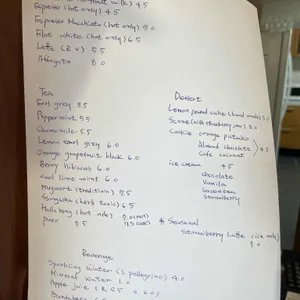 Espresso (hot only) 4.5
Espresso Macchiato (hot only) 5.0
Flat white (hot only) 6.5
Late 5.5
Affogato 8.0
Tea
Earl grey 5.5
Peppermint 5.5
Chamomile 5.5
Lemon earl grey 6.0
Orange grapefruit black 6.0
Berry hibiscus 6.0
Cool lime mint 6.0
Mugwort (tradition) 7.5
Ssangwha (herb tonic) 6.5
puer 5.5
Dessert
Lemon pound cake (hand made)
Scone (with strawberry jam)
Cookie orange pistachio
Almond chocolate 4.5
Cafe coconut
ice cream 4.5
chocolate
Vanilla
Greentea
strawberry
* Seasonal
strawberry Latte (ice only)
9.0
Beverage
Sparkling Water (S. pellegrino) 4.0
Mineral water
Apple juice